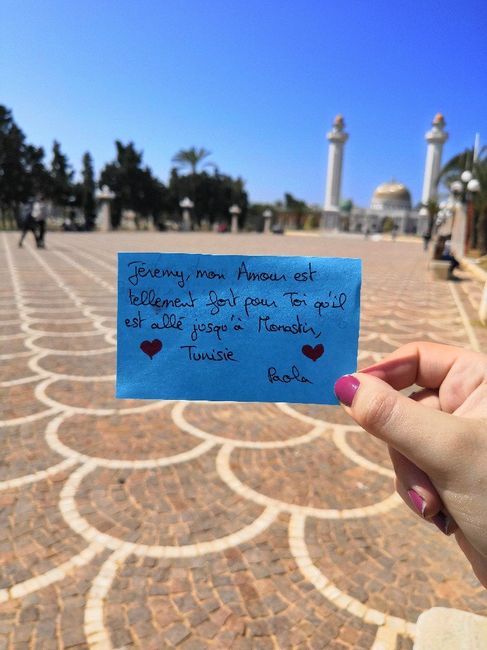 Jérémy, mon Amour est
tellement fort pour Toi qu'il
est allé jusqu'à Monastir,
Tunisie
Paola